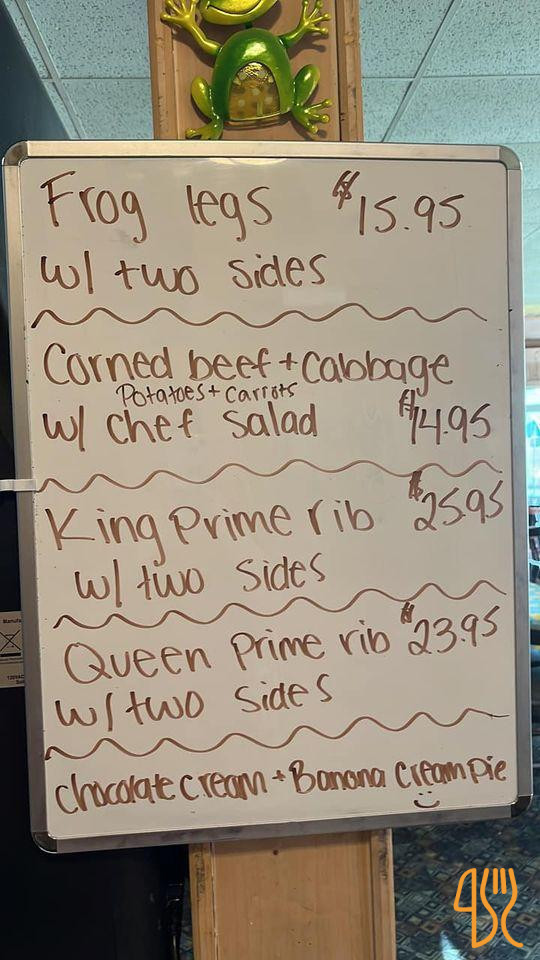 Frog legs $15.95
w/ two sides
Corned beef + Cabbage
Potatoes + Carrots
w/ chef salad $14.95
King Prime rib $25.95
w/ two sides
Queen Prime rib $23.95
w/ two sides
Chocolate Cream + Banana Cream Pie